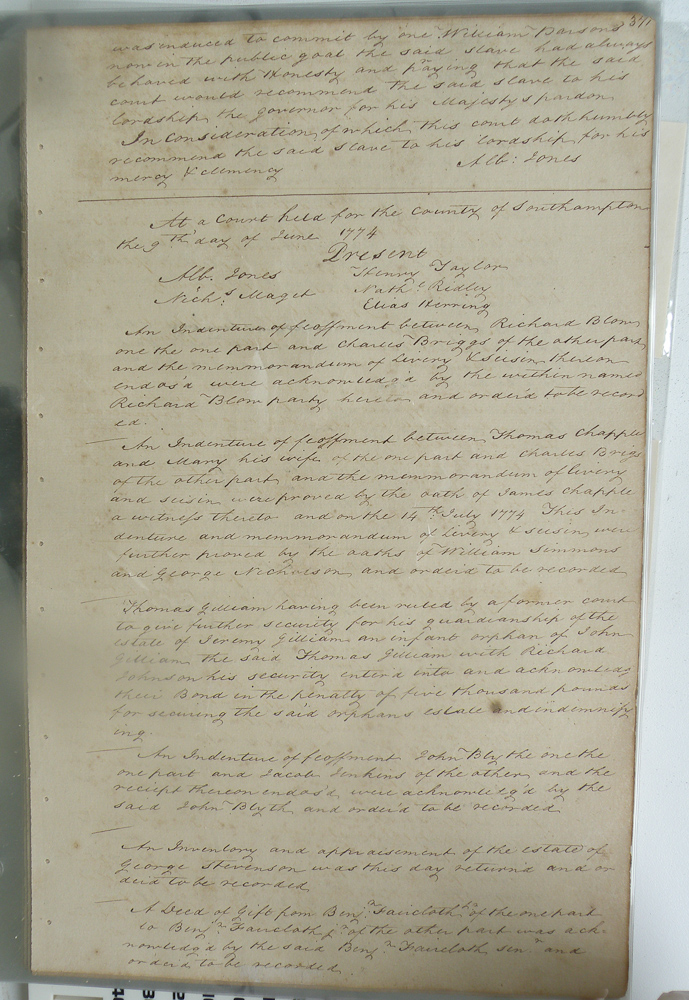 371
was induced to commit by one William Parsons
now in the public goal the said slave had always
behaved with Honesty and praying that the said
court would recommend the said slave to his
lordship the Governor for his Majestys pardon
In Consideration of which this court doth humbly
recommend the said slave to his lordship for his
mercy & clemency Alb: Jones
At a Court held for the County of Southampton
the 9th day of June 1774
Present
Alb. Jones Henry Taylor
Nichs. Maget Nathl. Ridley
Elias Herring
An Indenture of feoffment between Richard Blow
one the one part and Charles Briggs of the other part
and the memmorandum of Livery & seisin thereon
endos'd were acknowledg'd by the within named
Richard Blow party hereto and order'd to be record
ed.
An Indenture of feoffment between Thomas Chapple
and Mary his wife of the one part and Charles Brigs
of the other part and the memmorandum of livery
and seisin were proved by the oath of James Chapple
a witness thereto and on the 14th July 1774 This In-
denture and memmorandum of Livery & seisin were
further proved by the oaths of William Simmons
and George Nicholson and order'd to be recorded
Thomas Gilliam having been ruled by a former court
to give further security for his guardianship of the
estate of Jeremy Gilliam an infant orphan of John
Gilliam the said Thomas Gilliam with Richard
Johnson his security enter'd into and acknowledg
their Bond in the penalty of five thousand pounds
for securing the said orphans estate and indemnify
ing.
An Indenture of feoffment John Bly the one the
one part and Jacob Jenkins of the other and the
receipt thereon endos'd were acknowledg'd by the
said John Blyth and order'd to be recorded
An Inventory and appraisement of the estate of
George Stevenson was this day return'd and or
der'd to be recorded
A Deed of Gift from Benjn. Faircloth of the one part
to Benjn. Faircloth jr. of the other part was ack-
nowledg'd by the said Benjn. Faircloth senr. and
order'd to be recorded